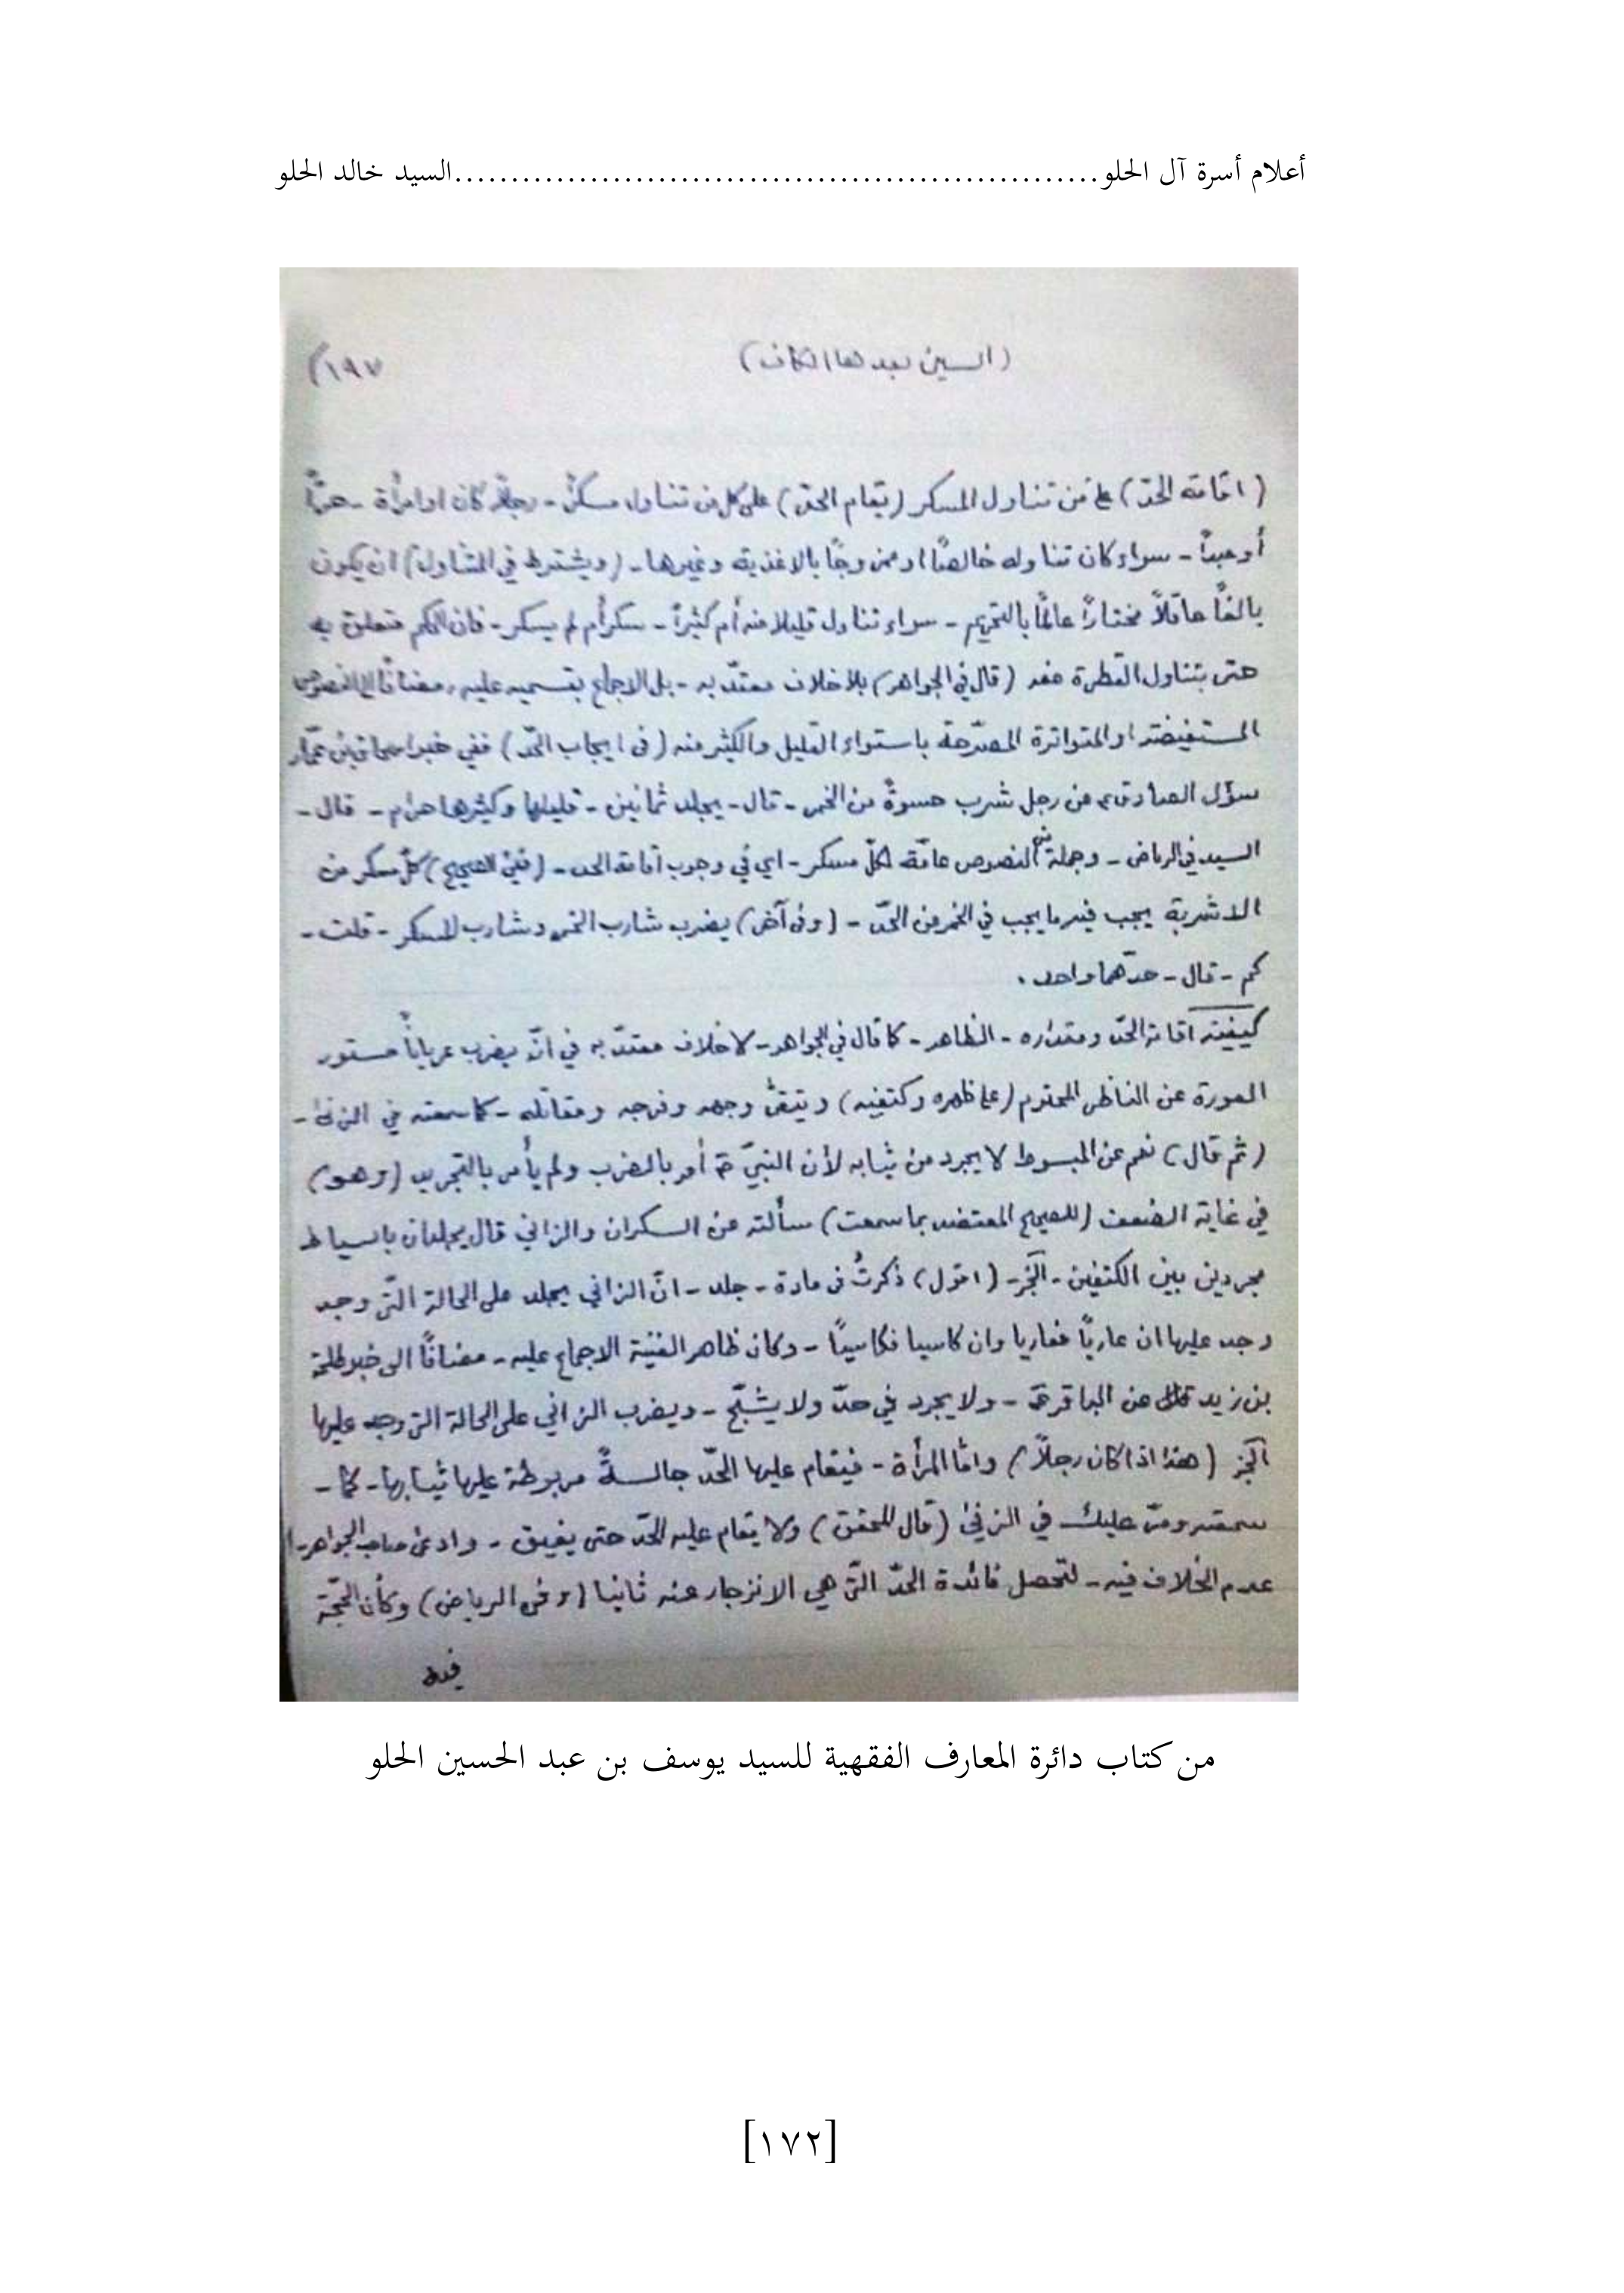 أعلام أسرة آل الحلو.........................................................السيد خالد الحلو
(السين بعدها الكاف) ١٩٧)
(اقامة الحدّ) على من تناول المسكر (يقام الحدّ) على كل من تناول مسكرٌ - رجلاً كان او امرأة - حرّاً
أو عبداً - سواء كان تناوله خالصًا او ممزوجًا بالاغذية وغيرها - (ويشترط في المتناول) ان يكون
بالغًا عاقلاً مختاراً عالمًا بالتحريم - سواء تناول قليلا منه أم كثيراً - سكر أم لم يسكر - فان الحكم متعلق به
حتى بتناول القطرة منه (قال في الجواهر) بلا خلاف معتدّ به - بل الاجماع بقسميه عليه، مضافًا الى النصوص
المستفيضة او المتواترة المصرّحة باستواء القليل والكثير منه (في ايجاب الحدّ) ففي خبر اسحاق بن عمّار
سؤل الصادق ع من رجل شرب حسوةً من الخمر - قال - يجلد ثمانين - قليلها وكثيرها حرام - قال -
السيد في الرياض - وجملة من النصوص عامّة لكلّ مسكر - اي في وجوب اقامة الحد - (ففي الصحيح) كلّ مسكر من
الاشربة يجب فيه ما يجب في الخمر من الحدّ - (وفي آخر) يضرب شارب الخمر وشارب المسكر - قلت -
كم - قال - حدّهما واحد .
كيفية اقامة الحدّ ومقداره - الظاهر - كما قال في الجواهر - لا خلاف معتدّ به في انّه يضرب عرياناً مستور
العورة عن الناظر المحترم (على ظهره وكتفيه) ويتقى وجهه وفرجه ومقاتله - كما سمعته في الزنى -
(ثم قال) نعم عن المبسوط لا يجرد من ثيابه لأن النبيّ ص أمر بالضرب ولم يأمر بالتجريد (وهو)
في غاية الضعف (للصحيح المعتضد بما سمعت) سألته عن السكران والزاني قال يجلدان بالسياط
مجردين بين الكتفين - الخ - (اقول) ذكرتُ في مادة - جلد - انّ الزاني يجلد على الحالة التّي وجد
وجد عليها ان عاريًا فعاريا وان كاسيا فكاسيًا - وكان ظاهر الغنية الاجماع عليه - مضافًا الى خبر طلحة
بن زيد عن الباقر ع - ولا يجرد في حدّ ولا يشبّح - ويضرب الزاني على الحالة التي وجد عليها
الخ (هذا اذا كان رجلاً) وامّا المرأة - فيقام عليها الحدّ جالسةً مربوطة عليها ثيابها - كما -
سمعته ومرّ عليك في الزنى (قال المحقق) ولا يقام عليه الحدّ حتى يفيق - وادعى صاحب الجواهر -
عدم الخلاف فيه - لتحصل فائدة الحدّ التّي هي الانزجار عنه ثانيا (وفي الرياض) وكأن الحجّة
فيه
من كتاب دائرة المعارف الفقهية للسيد يوسف بن عبد الحسين الحلو
[١٧٢]